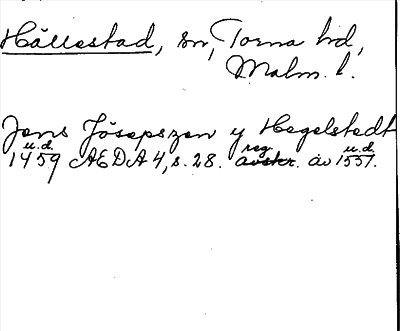 Hällestad, sn, Torna hd,
Malm. l.
Jens Jösepszen y Hegelstedt
u.d. u.d.
1459 AEDA 4, s. 28. reg. avskr. av 1551.